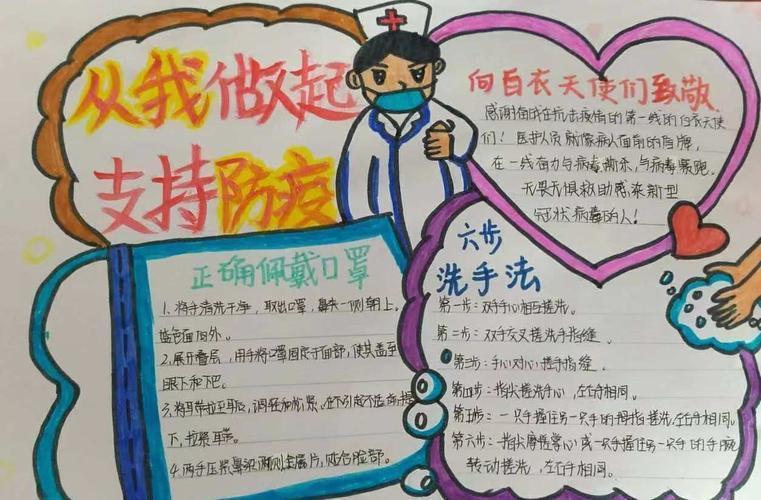 从我做起
支持防疫
向白衣天使们致敬
感谢奋战在抗击疫情的第一线的白衣天使
们！医护人员就像病人面前的盾牌，
在一线奋力与病毒撕杀，与病毒赛跑。
无畏无惧救助感染新型
冠状病毒的人！
正确佩戴口罩
1、将手清洗干净，取出口罩，鼻夹一侧朝上。
蓝色面向外。
2、展开叠层，用手将口罩固定于面部，使其盖至
眼下和下巴。
3、将耳带拉至耳后，调轻和松紧。在不引起不适
下，拉紧耳带。
4、两手压紧鼻梁两侧金属片，贴合脸部。
六步
洗手法
第一步：双手手心相互搓洗。
第二步：双手交叉搓洗手指缝。
第三步：手心对心搓手指缝。
第四步：指尖搓洗手心，左右手相同。
第五步：一只手握住另一只手的拇指搓洗，左右手相同。
第六步：指尖摩搓掌心或一只手握住另一只手的手腕
转动搓洗，左右手相同。